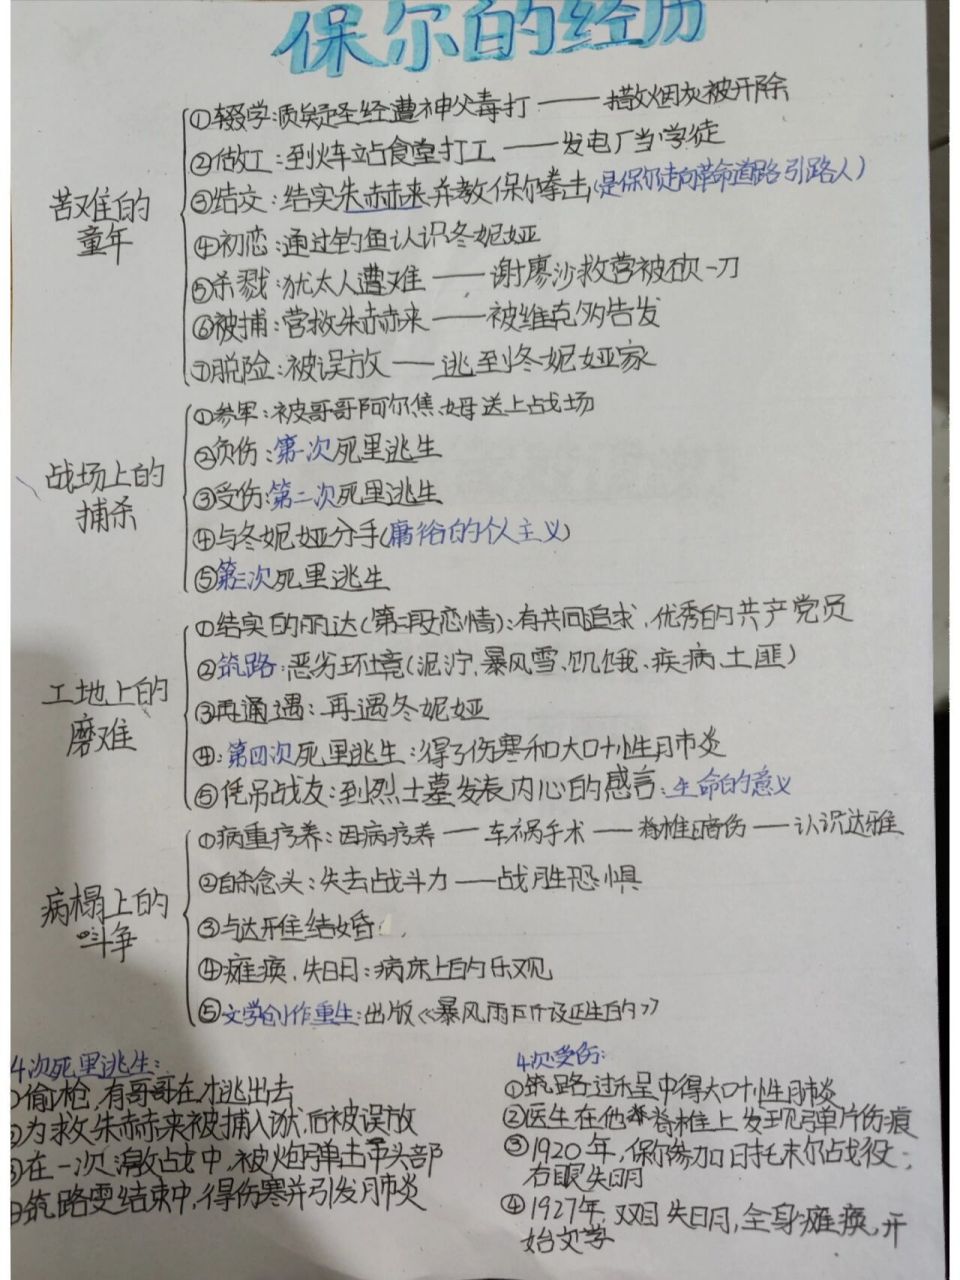 保尔的经历
苦难的
童年
①辍学:质疑圣经遭神父毒打——撒烟灰被开除
②做工:到火车站食堂打工——发电厂当学徒
③结交:结实朱赫来并教保尔拳击(是保尔走向革命道路引路人)
④初恋:通过钓鱼认识冬妮娅
⑤杀戮:犹太人遭难——谢廖沙救营被砍一刀
⑥被捕:营救朱赫来——被维克多告发
⑦脱险:被误放——逃到冬妮娅家
战场上的
捕杀
①参军:被哥哥阿尔焦姆送上战场
②负伤:第一次死里逃生
③受伤:第二次死里逃生
④与冬妮娅分手(庸俗的个人主义)
⑤第三次死里逃生
工地上的
磨难
①结实的丽达(第二段恋情):有共同追求、优秀的共产党员
②筑路:恶劣环境(泥泞、暴风雪、饥饿、疾病、土匪)
③再通遇:再遇冬妮娅
④:第四次死里逃生:得了伤寒和大叶性肺炎
⑤凭吊战友:到烈士墓发表内心的感言:生命的意义
病榻上的
斗争
①病重疗养:因病疗养——车祸手术——脊椎暗伤——认识达雅
②自杀念头:失去战斗力——战胜恐惧
③与达雅结婚
④瘫痪、失明:病床上的乐观
⑤文学创作重生:出版《暴风雨所诞生的》
4次死里逃生:
①偷枪,有哥哥在才逃出去
②为救朱赫来被捕入狱,后被误放
③在一次激战中,被炮弹击中头部
④筑路要结束中,得伤寒并引发肺炎
4次受伤:
①筑路过程中得大叶性肺炎
②医生在他脊椎上发现弹片伤痕
③1920年,保尔参加日托末尔战役;
右眼失明
④1927年,双目失明,全身瘫痪,开
始文学